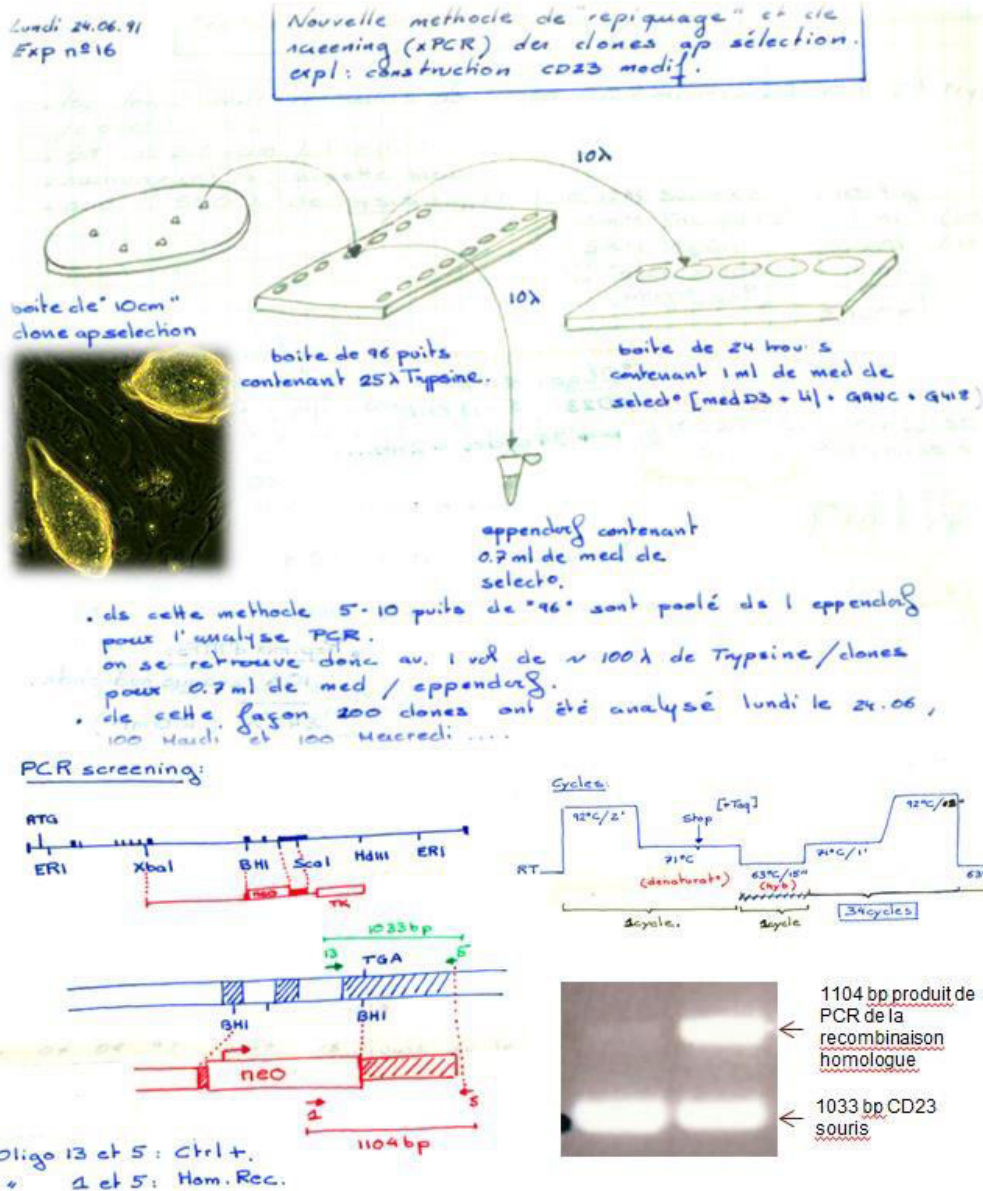 Lundi 24.06.91
Exp nº16
Nouvelle methode de "repiquage" et de
screening (xPCR) des clones ap sélection.
expl: construction CD23 modif.
10λ
10λ
boite de "10cm"
clone ap selection
boite de 96 puits
contenant 25λ Trypsine.
boite de 24 trous
contenant 1ml de med de
select° [med D3 + Li] + GANC + G418)
eppendorf contenant
0.7ml de med de
select°.
. ds cette methode 5-10 puits de "96" sont poolé ds 1 eppendorf
pour l'analyse PCR.
on se retrouve donc av. 1 vol de ~ 100λ de Trypsine/clones
pour 0.7ml de med / eppendorf.
. de cette façon 200 clones ont été analysé lundi le 24.06,
100 Mardi et 100 Mercredi ....
PCR screening:
ATG
ERI XbaI BHI ScaI HdIII ERI
neo
TK
1033bp
13 5
TGA
BHI BHI
neo
1 5
1104bp
Oligo 13 et 5: Ctrl+.
" 1 et 5: Hom. Rec.
Cycles:
92°C/2' [+Taq] 92°C/
Stop
71°C 71°C/1'
RT 63°C/15" 63
(denaturat°) (hyb)
1cycle. 1cycle 34cycles
1104 bp produit de
PCR de la
recombinaison
homologue
1033 bp CD23
souris